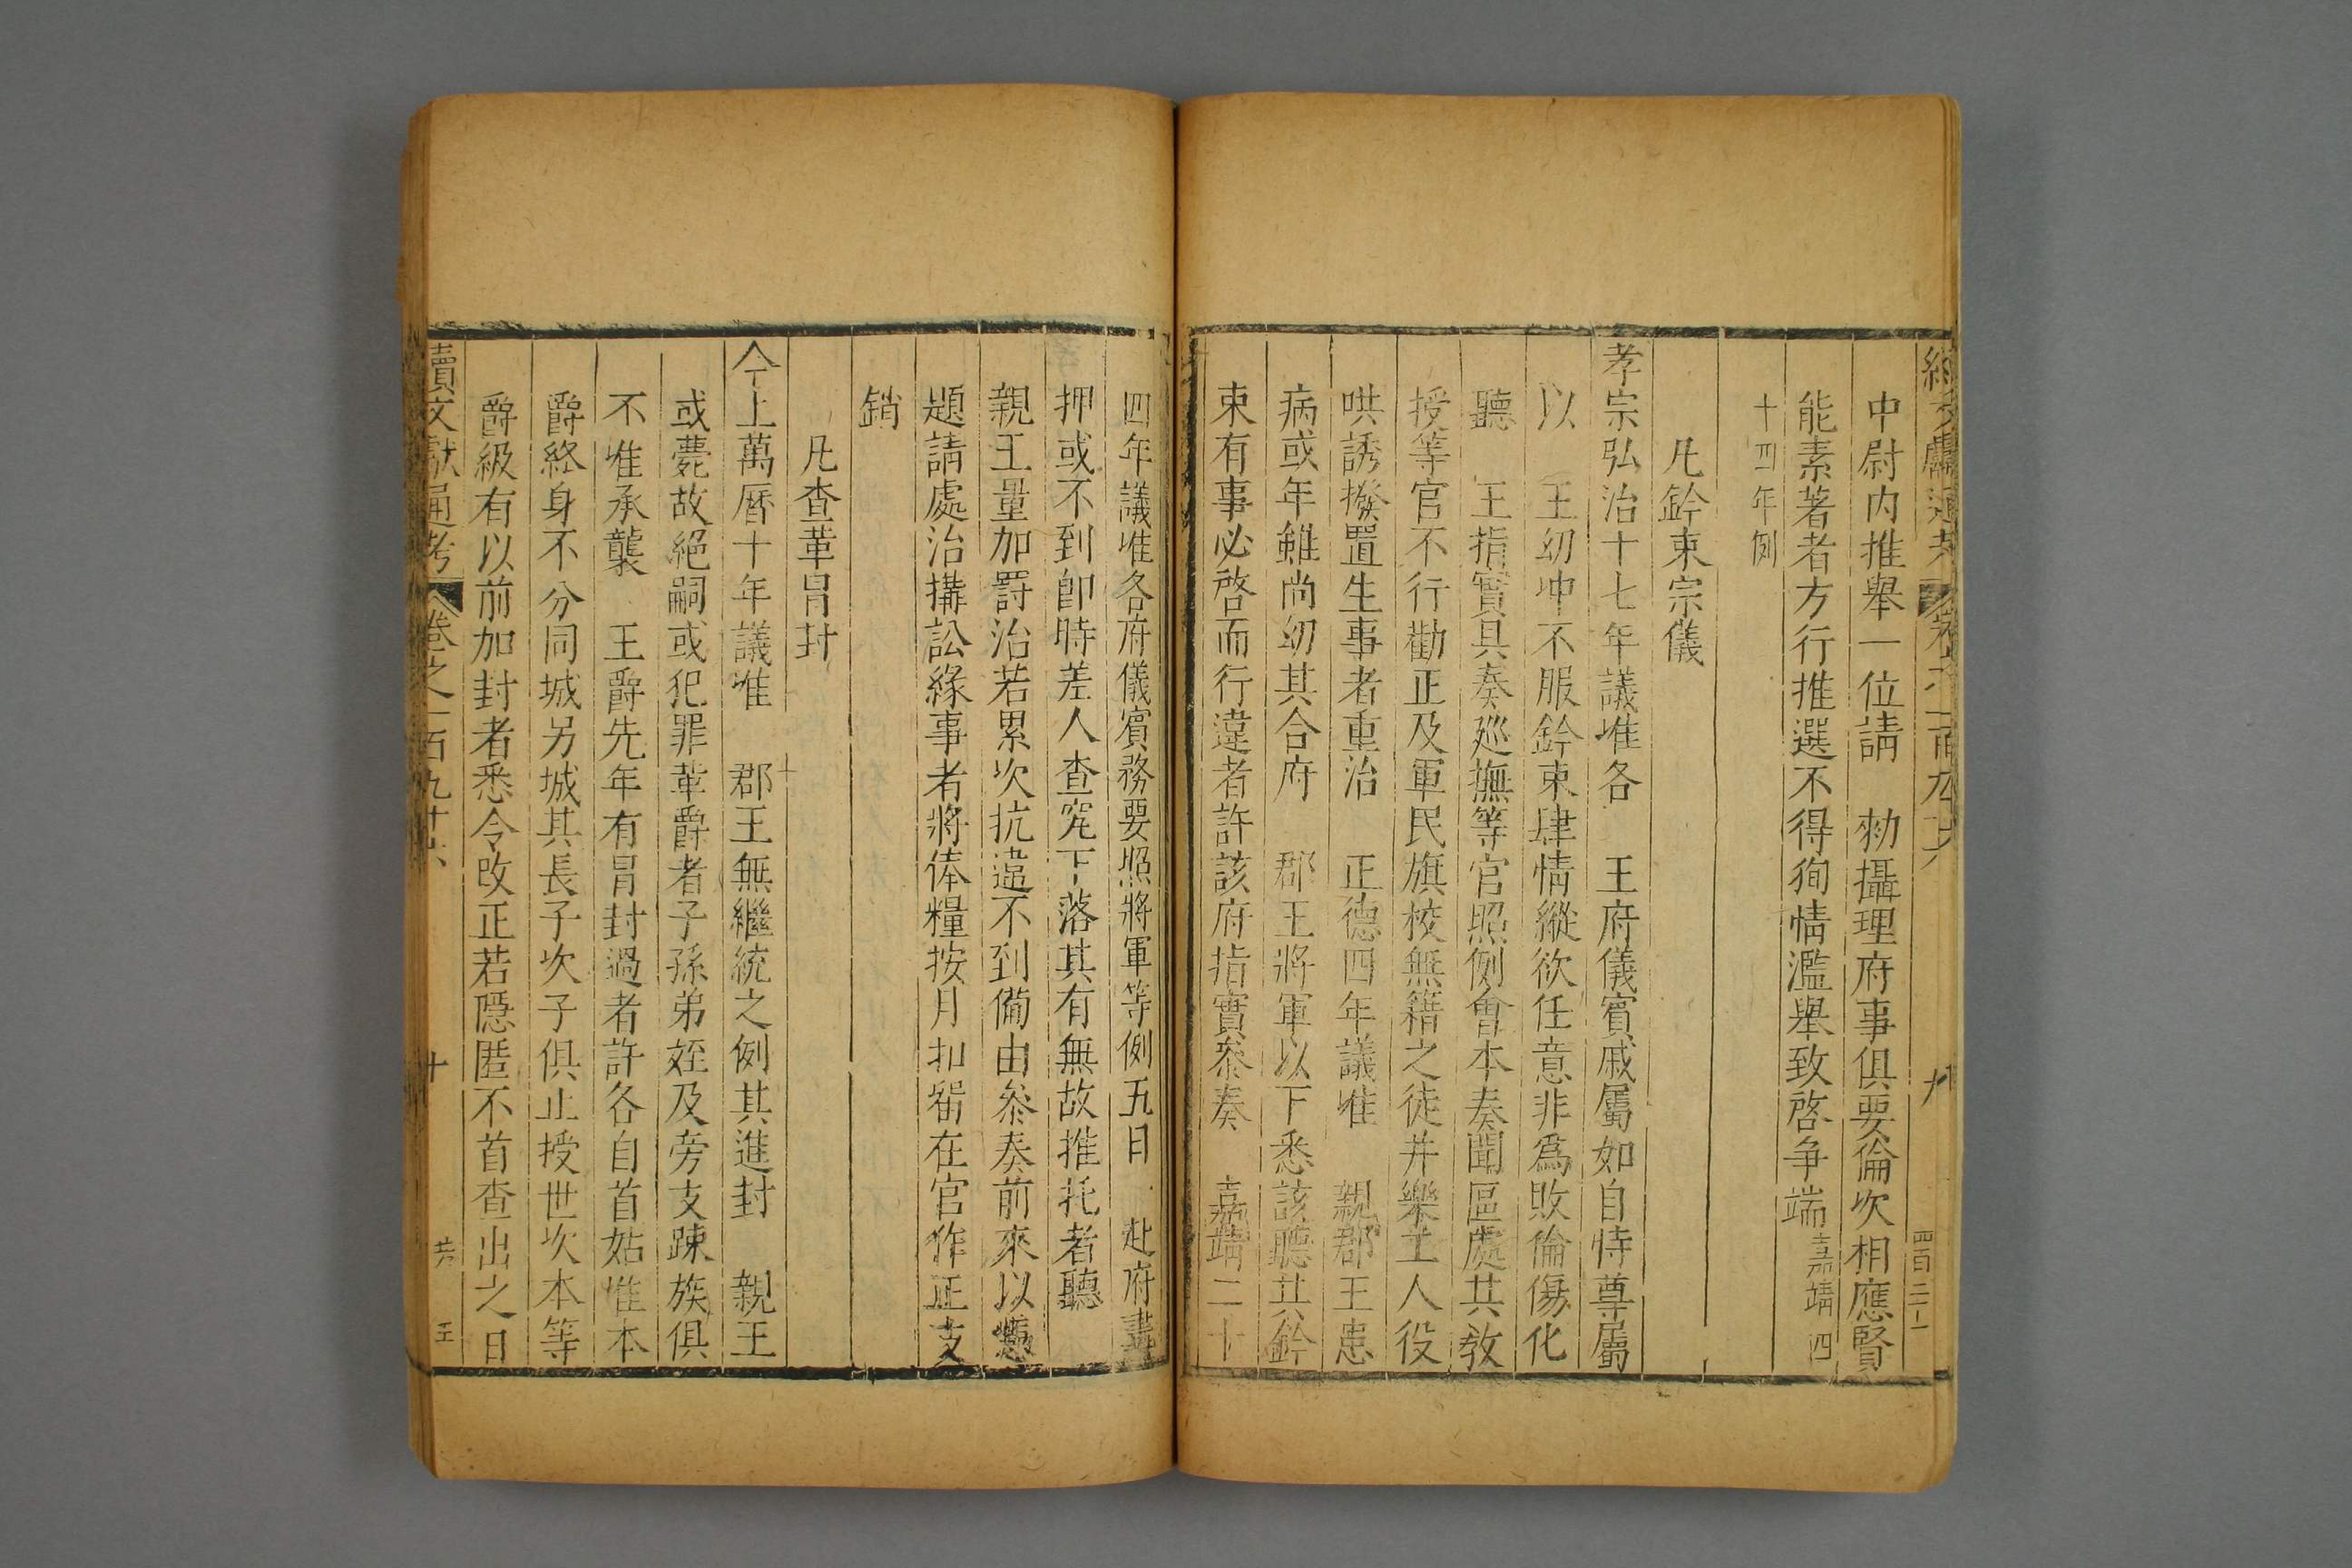 中尉内推舉一位請 勑攝理府事俱要倫次相應賢
能素著者方行推選不得狥情濫舉致啓争端嘉靖四
十四年例
凡鈐束宗儀
孝宗弘治十七年議准各 王府儀賓戚屬如自恃尊屬
以 王幼冲不服鈐束肆情縱欲任意非爲敗倫傷化
聽 王指實具奏廵撫等官照例會本奏聞區處其敎
授等官不行勸正及軍民旗校無籍之徒并樂工人役
哄誘撥置生事者重治 正德四年議准 親郡王患
病或年雖尚幼其合府 郡王將軍以下悉該聽其鈐
束有事必啓而行違者許該府指實叅奏 嘉靖二十
四年議准各府儀賓務要照將軍等例五日 赴府畫
押或不到卽時差人查究下落其有無故推托者聽
親王量加罸治若累次抗違不到備由叅奏前來以憑
題請處治搆訟緣事者將俸糧按月扣畱在官作正支
銷
凡查革冒封
今上萬曆十年議准 郡王無繼統之例其進封 親王
或薨故絕嗣或犯罪革爵者子孫弟姪及旁支踈族俱
不准承襲 王爵先年有冒封過者許各自首姑准本
爵終身不分同城另城其長子次子俱止授世次本等
爵級有以前加封者悉令改正若隱匿不首查出之日
續文獻通考 卷之一百九十六 十